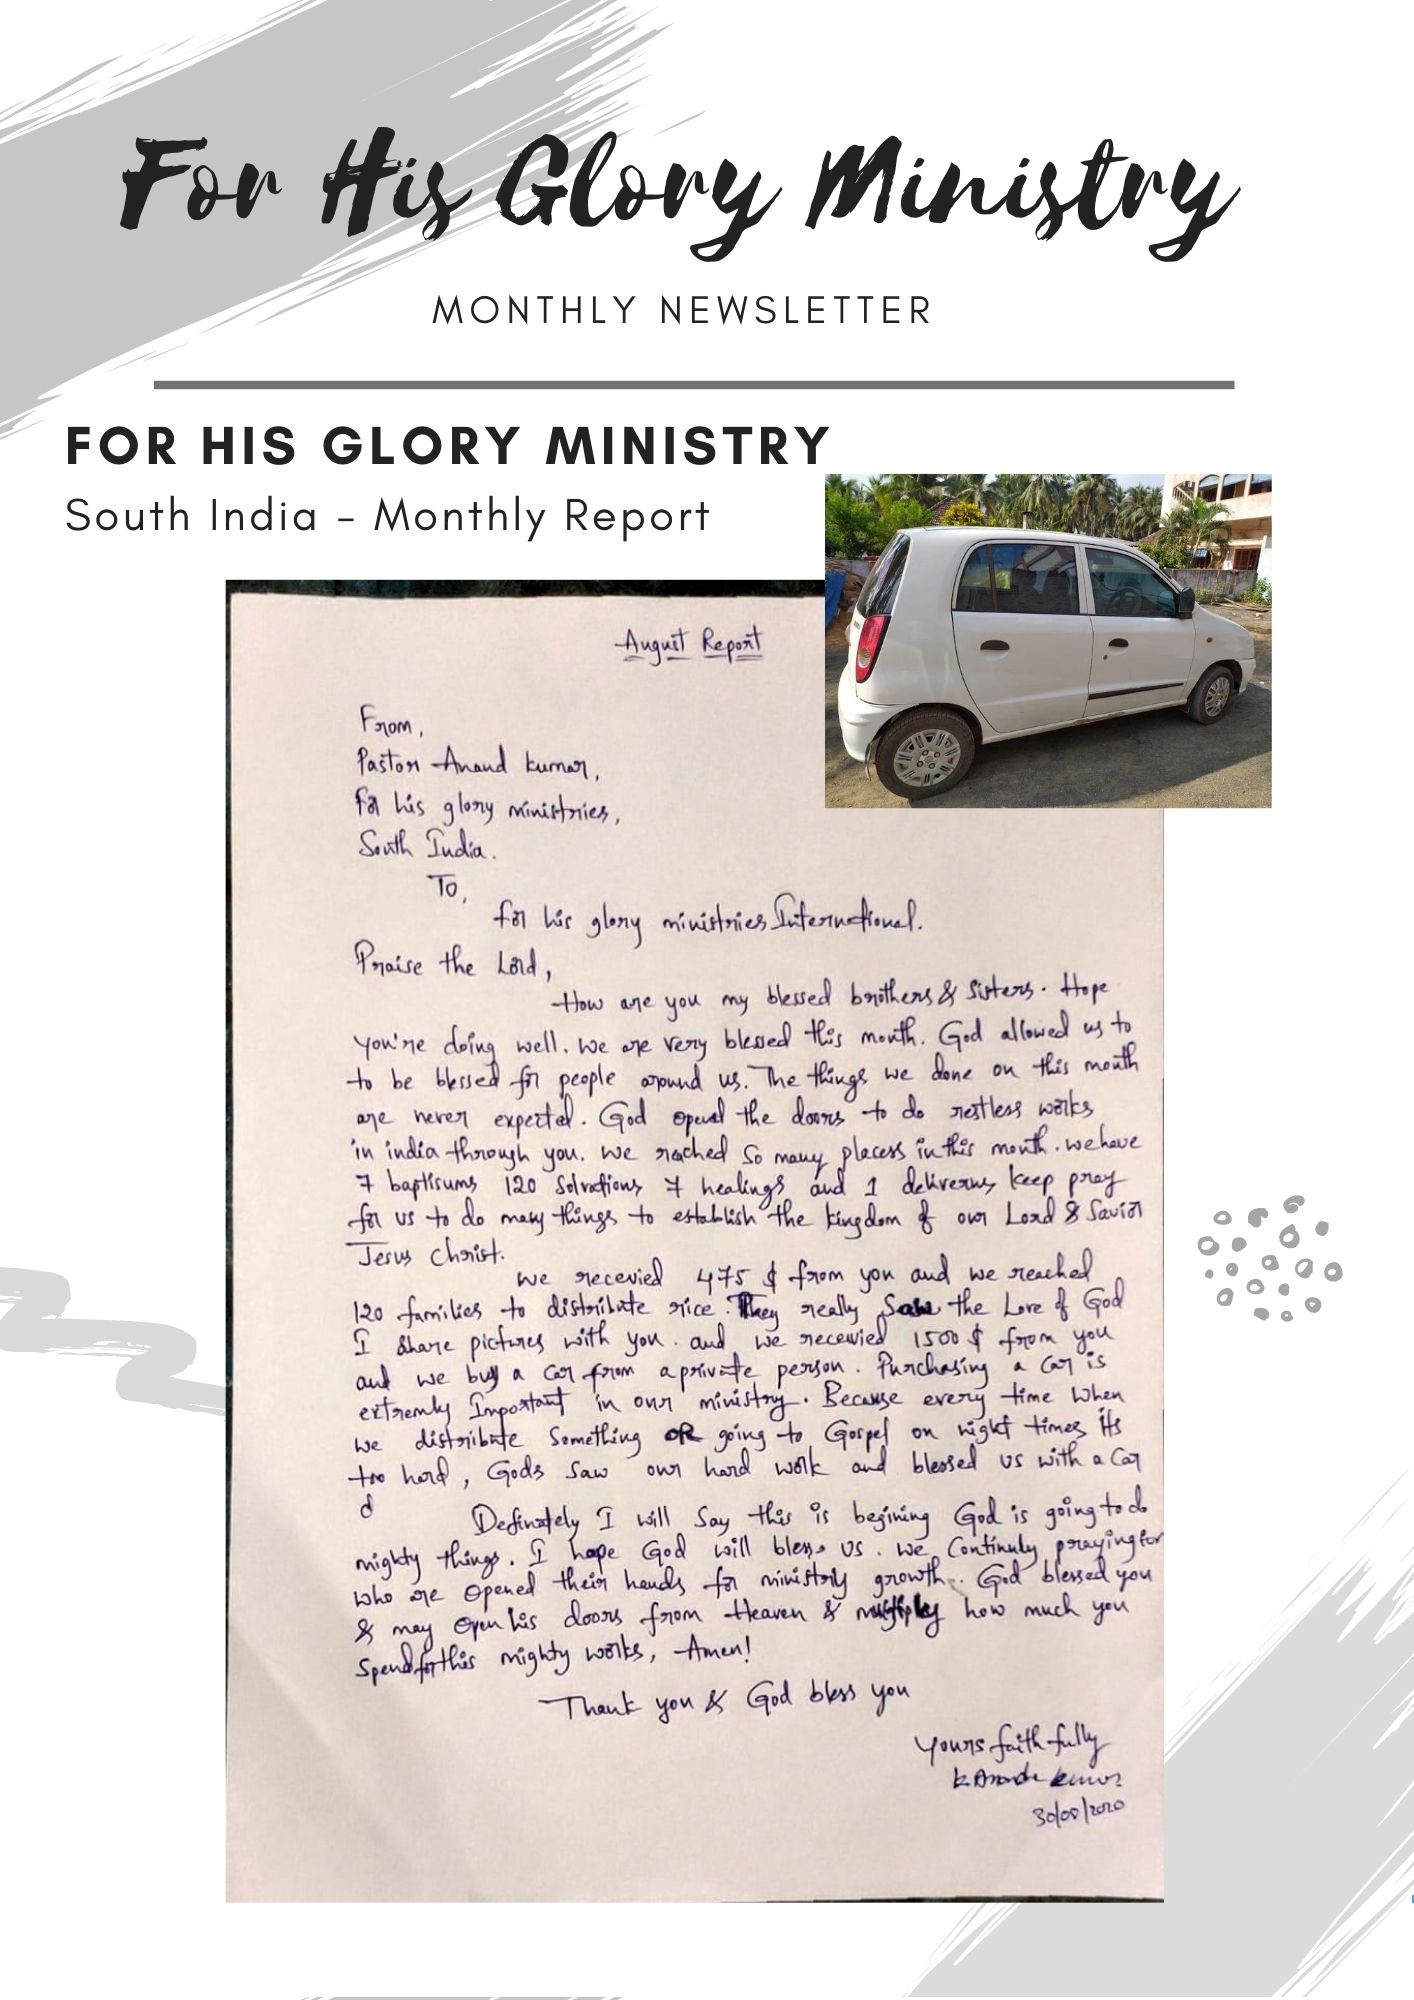 For His Glory Ministry
MONTHLY NEWSLETTER
FOR HIS GLORY MINISTRY
South India - Monthly Report
August Report
From,
Pastor Anand kumar,
For his glory ministries,
South India.
To,
for his glory ministries International.
Praise the Lord,
How are you my blessed brothers & Sisters. Hope
you're doing well. we are very blessed this month. God allowed us to
to be blessed for people around us. The things we done on this month
are never expected. God opened the doors to do restless works
in india through you. we reached so many placess in this month. we have
7 baptisums 120 Solvations 7 healings and 1 keep pray
for us to do many things to establish the kingdom of our Lord & Savior
Jesus Christ.
we recevied 475 $ from you and we reached
120 families to distribute rice. They really Saw the Love of God
I share pictures with you. and we recevied 1500 $ from you
and we buy a car from a private person. Purchasing a car is
extremly Important in our ministry. Because every time when
we distribute Something OR going to Gospel on night times its
too hard, Gods saw our hard work and blessed us with a car
d
Definately I will Say this is begining God is going to do
mighty things. I hope God will bless us. we Continuly praying for
who are opened their hands for ministry growth. God blessed you
& may open his doors from Heaven & multiply how much you
spend for this mighty works, Amen!
Thank you & God bless you
Yours faithfully
k Anand kumar
30/08/2020